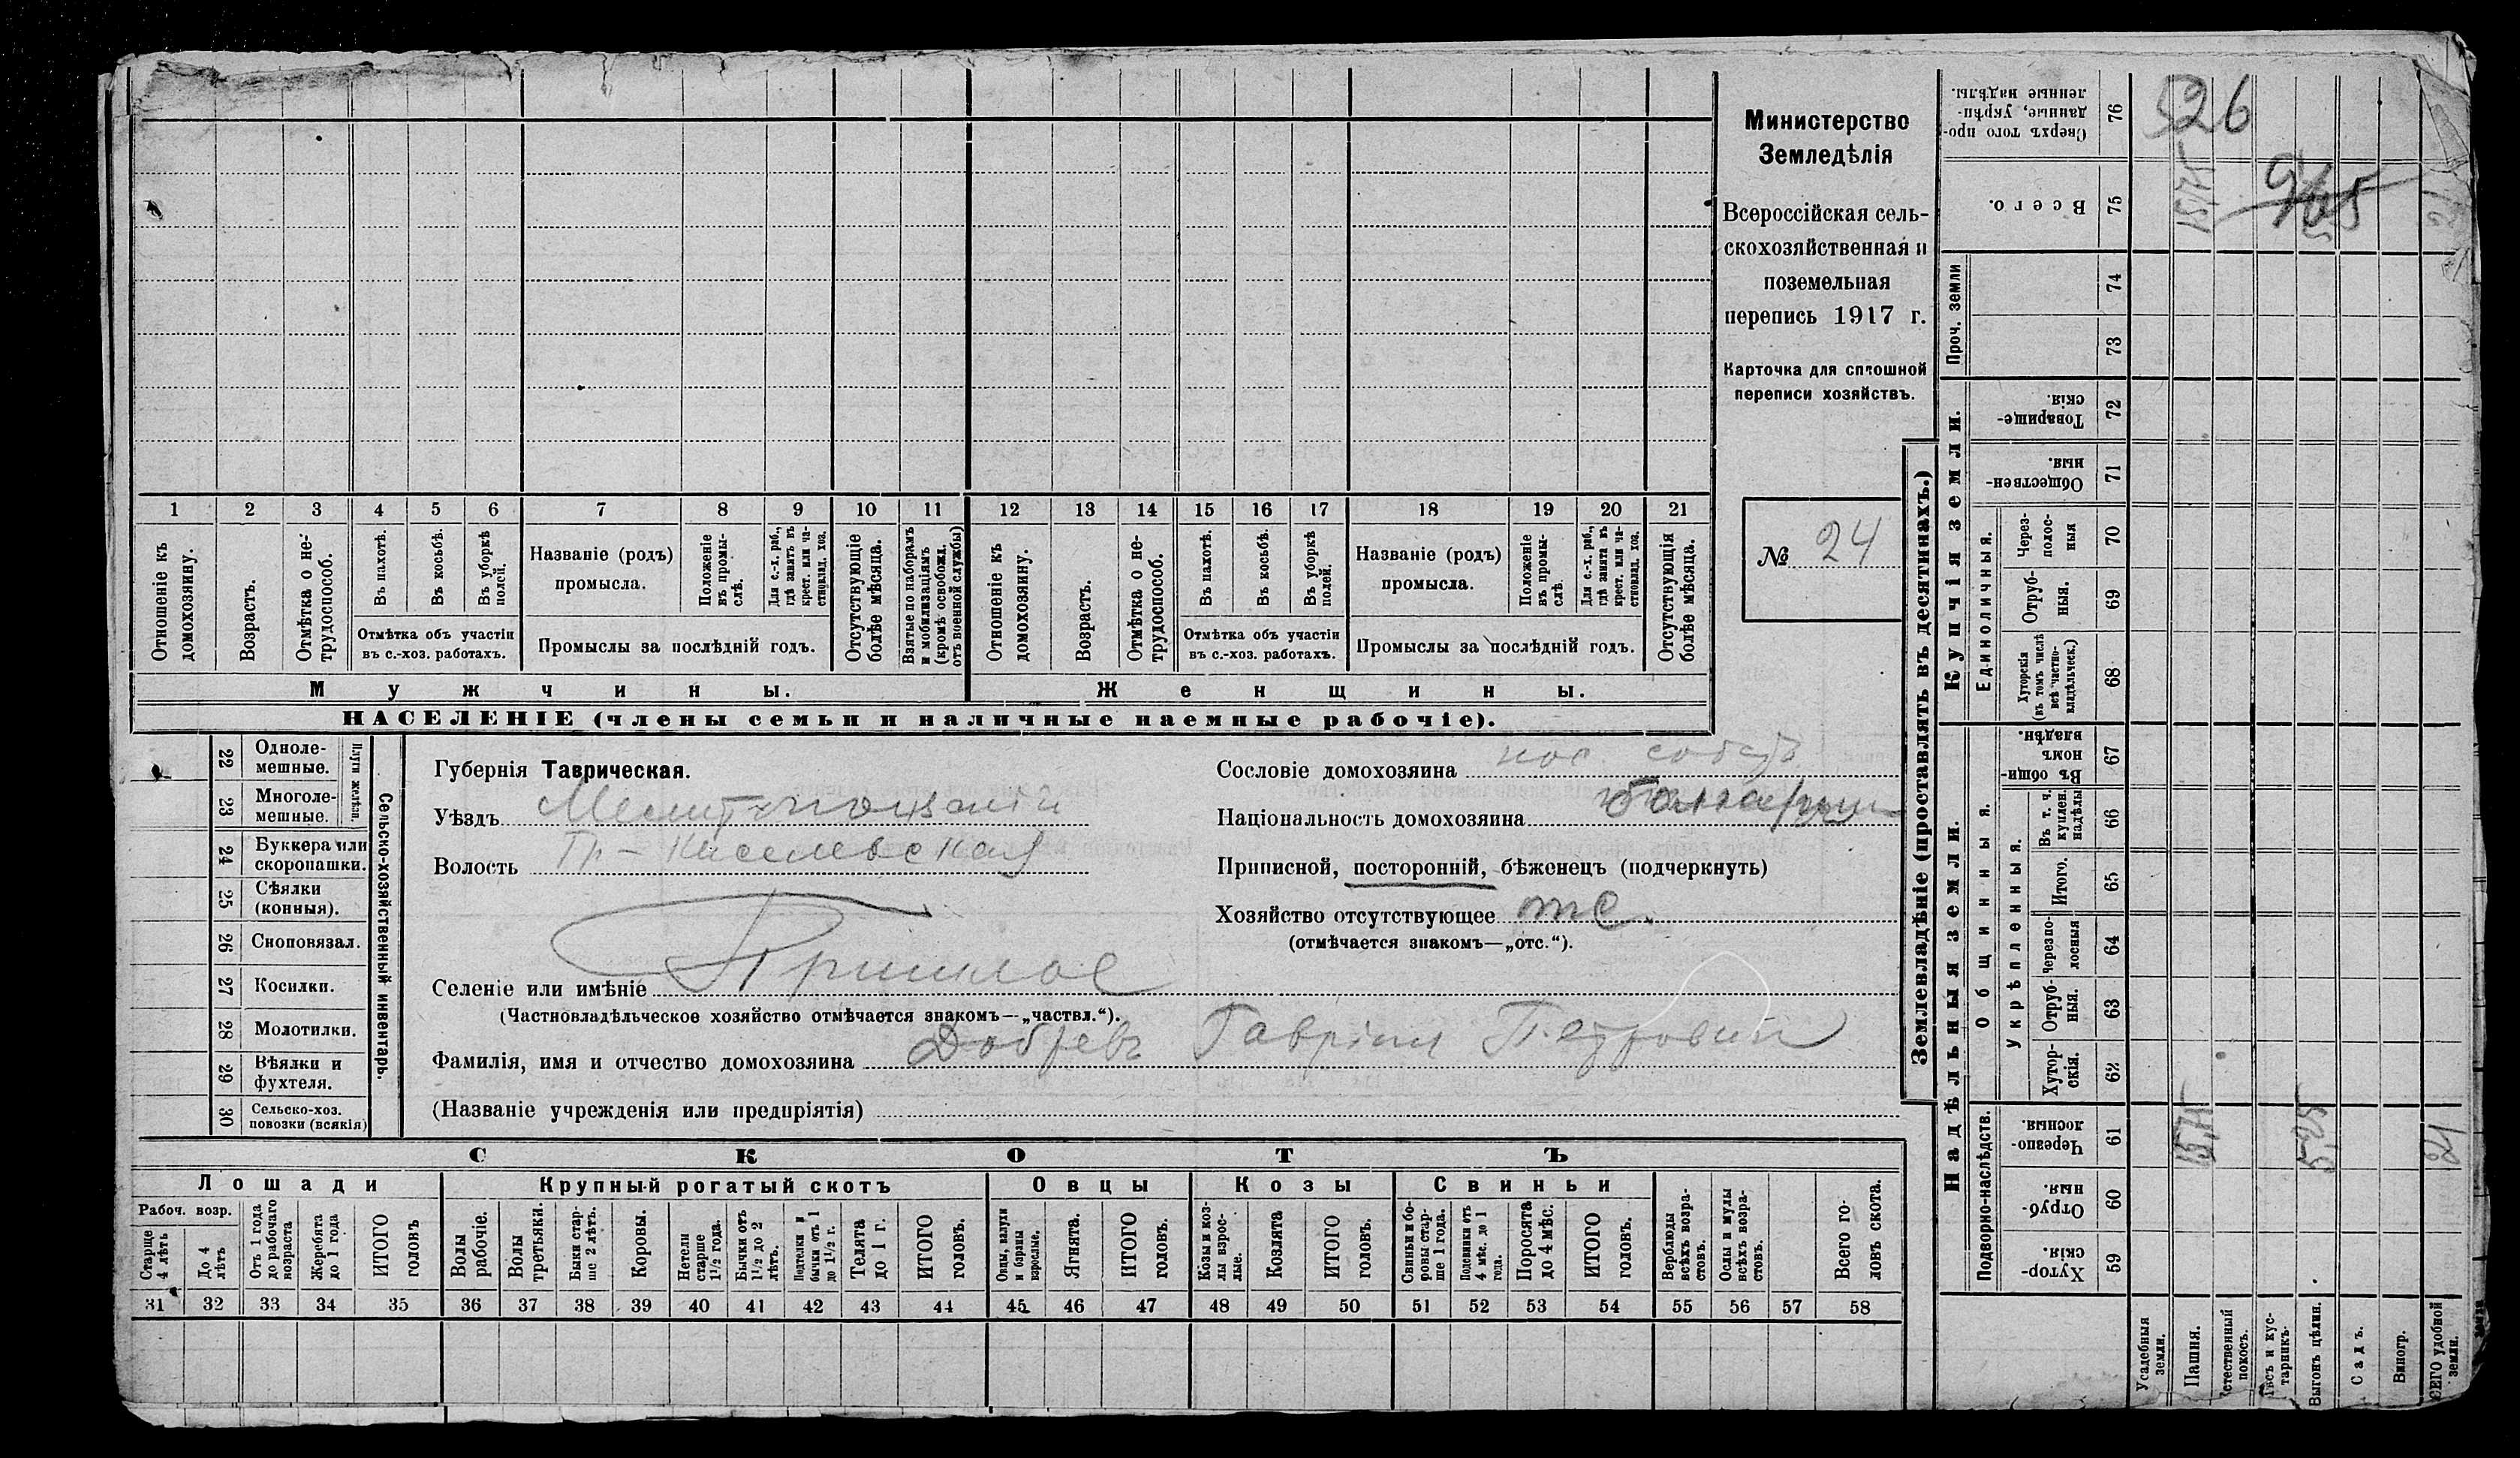 Министерство
Земледѣлія
Всероссійская сель-
скохозяйственная и
поземельная
перепись 1917 г.
Карточка для сплошной
переписи хозяйствъ.
№ 24
1 2 3 4 5 6 7 8 9 10 11 12 13 14 15 16 17 18 19 20 21
Отношеніе къ домохозяину.
Возрастъ.
Отмѣтка о не-трудоспособ.
Въ пахотѣ.
Въ косьбѣ.
Въ уборкѣ полей.
Отмѣтка объ участіи
въ с.-хоз. работахъ.
Названіе (родъ)
промысла.
Положеніе въ промы-слѣ.
Для с.-х. раб., гдѣ занятъ въ крест. или ча-стновлад. хоз.
Промыслы за послѣдній годъ.
Отсутствующіе болѣе мѣсяца.
Взятые по наборамъ и мобилизаціямъ (кромѣ освобожд. отъ военной службы)
Отношеніе къ домохозяину.
Возрастъ.
Отмѣтка о не-трудоспособ.
Въ пахотѣ.
Въ косьбѣ.
Въ уборкѣ полей.
Отмѣтка объ участіи
въ с.-хоз. работахъ.
Названіе (родъ)
промысла.
Положеніе въ промы-слѣ.
Для с.-х. раб., гдѣ занята въ крест. или ча-стновлад. хоз.
Промыслы за послѣдній годъ.
Отсутствующія болѣе мѣсяца.
Мужчины. Женщины.
НАСЕЛЕНІЕ (члены семьи и наличные наемные рабочіе).
22 Одноле-мешные.
23 Многоле-мешные.
Плуги желѣзн.
24 Буккера или скоропашки.
25 Сѣялки (конныя).
26 Сноповязал.
27 Косилки.
28 Молотилки.
29 Вѣялки и фухтеля.
30 Сельско-хоз. повозки (всякія)
Сельско-хозяйственный инвентарь.
Губернія Таврическая.
Уѣздъ Мелитопольскій
Волость Пр-Киселевская
Селеніе или имѣніе
(Частновладѣльческое хозяйство отмѣчается знакомъ—„частвл.“).
Фамилія, имя и отчество домохозяина Добревъ Гавріил Петрович
(Названіе учрежденія или предпріятія)
Сословіе домохозяина пос. собств
Національность домохозяина болгарин
Приписной, посторонній, бѣженецъ (подчеркнуть)
Хозяйство отсутствующее отс.
(отмѣчается знакомъ—„отс.“).
СКОТЪ
Лошади Крупный рогатый скотъ Овцы Козы Свиньи
Рабоч. возр.
Старше 4 лѣтъ
До 4 лѣтъ
Отъ 1 года до рабочаго возраста
Жеребята до 1 года
ИТОГО головъ
Волы рабочіе.
Волы третьяки.
Быки стар-ше 2 лѣтъ.
Коровы.
Нетели старше 1½ года.
Бычки отъ 1½ до 2 лѣтъ.
Подтелки и бычки отъ 1 до 1½ г.
Телята до 1 г.
ИТОГО головъ.
Овцы, валухи и бараны взрослые.
Ягнята.
ИТОГО головъ.
Козы и коз-лы взрос-лые.
Козлята
ИТОГО головъ.
Свиньи и бо-ровы стар-ше 1 года.
Подсвинки отъ 4 мѣс. до 1 года.
Поросята до 4 мѣс.
ИТОГО головъ.
Верблюды всѣхъ возра-стовъ.
Ослы и мулы всѣхъ возра-стовъ.
Всего го-ловъ скота.
31 32 33 34 35 36 37 38 39 40 41 42 43 44 45 46 47 48 49 50 51 52 53 54 55 56 57 58
Землевладѣніе (проставлять въ десятинахъ.)
Купчія земли.
Надѣльныя земли.
Сверхъ того про-данные, укрѣп-ленные надѣлы. 76 526
Всего. 75 15,75 965
Проч. земли 74 73
Товарище-скія. 72
Обществен-ныя. 71
Единоличныя.
Через-полос-ныя 70
Отруб-ныя. 69
Хуторскія (въ томъ числѣ всѣ частно-владѣльческ.) 68
Общинныя.
Въ общин-номъ владѣн. 67
Укрѣпленныя.
Въ т. ч. куплен. надѣлы 66
Итого. 65
Черезпо-лосныя 64
Отруб-ныя. 63
Хутор-скія. 62
Подворно-наслѣдств.
Черезпо-лосныя. 61 15,75 5,25 21
Отруб-ныя. 60
Хутор-скія. 59
Усадебныя земли.
Пашня.
Естественный покосъ.
Лѣсъ и кус-тарникъ.
Выгонъ цѣлин.
Садъ.
Виногр.
ВСЕГО удобной земли.